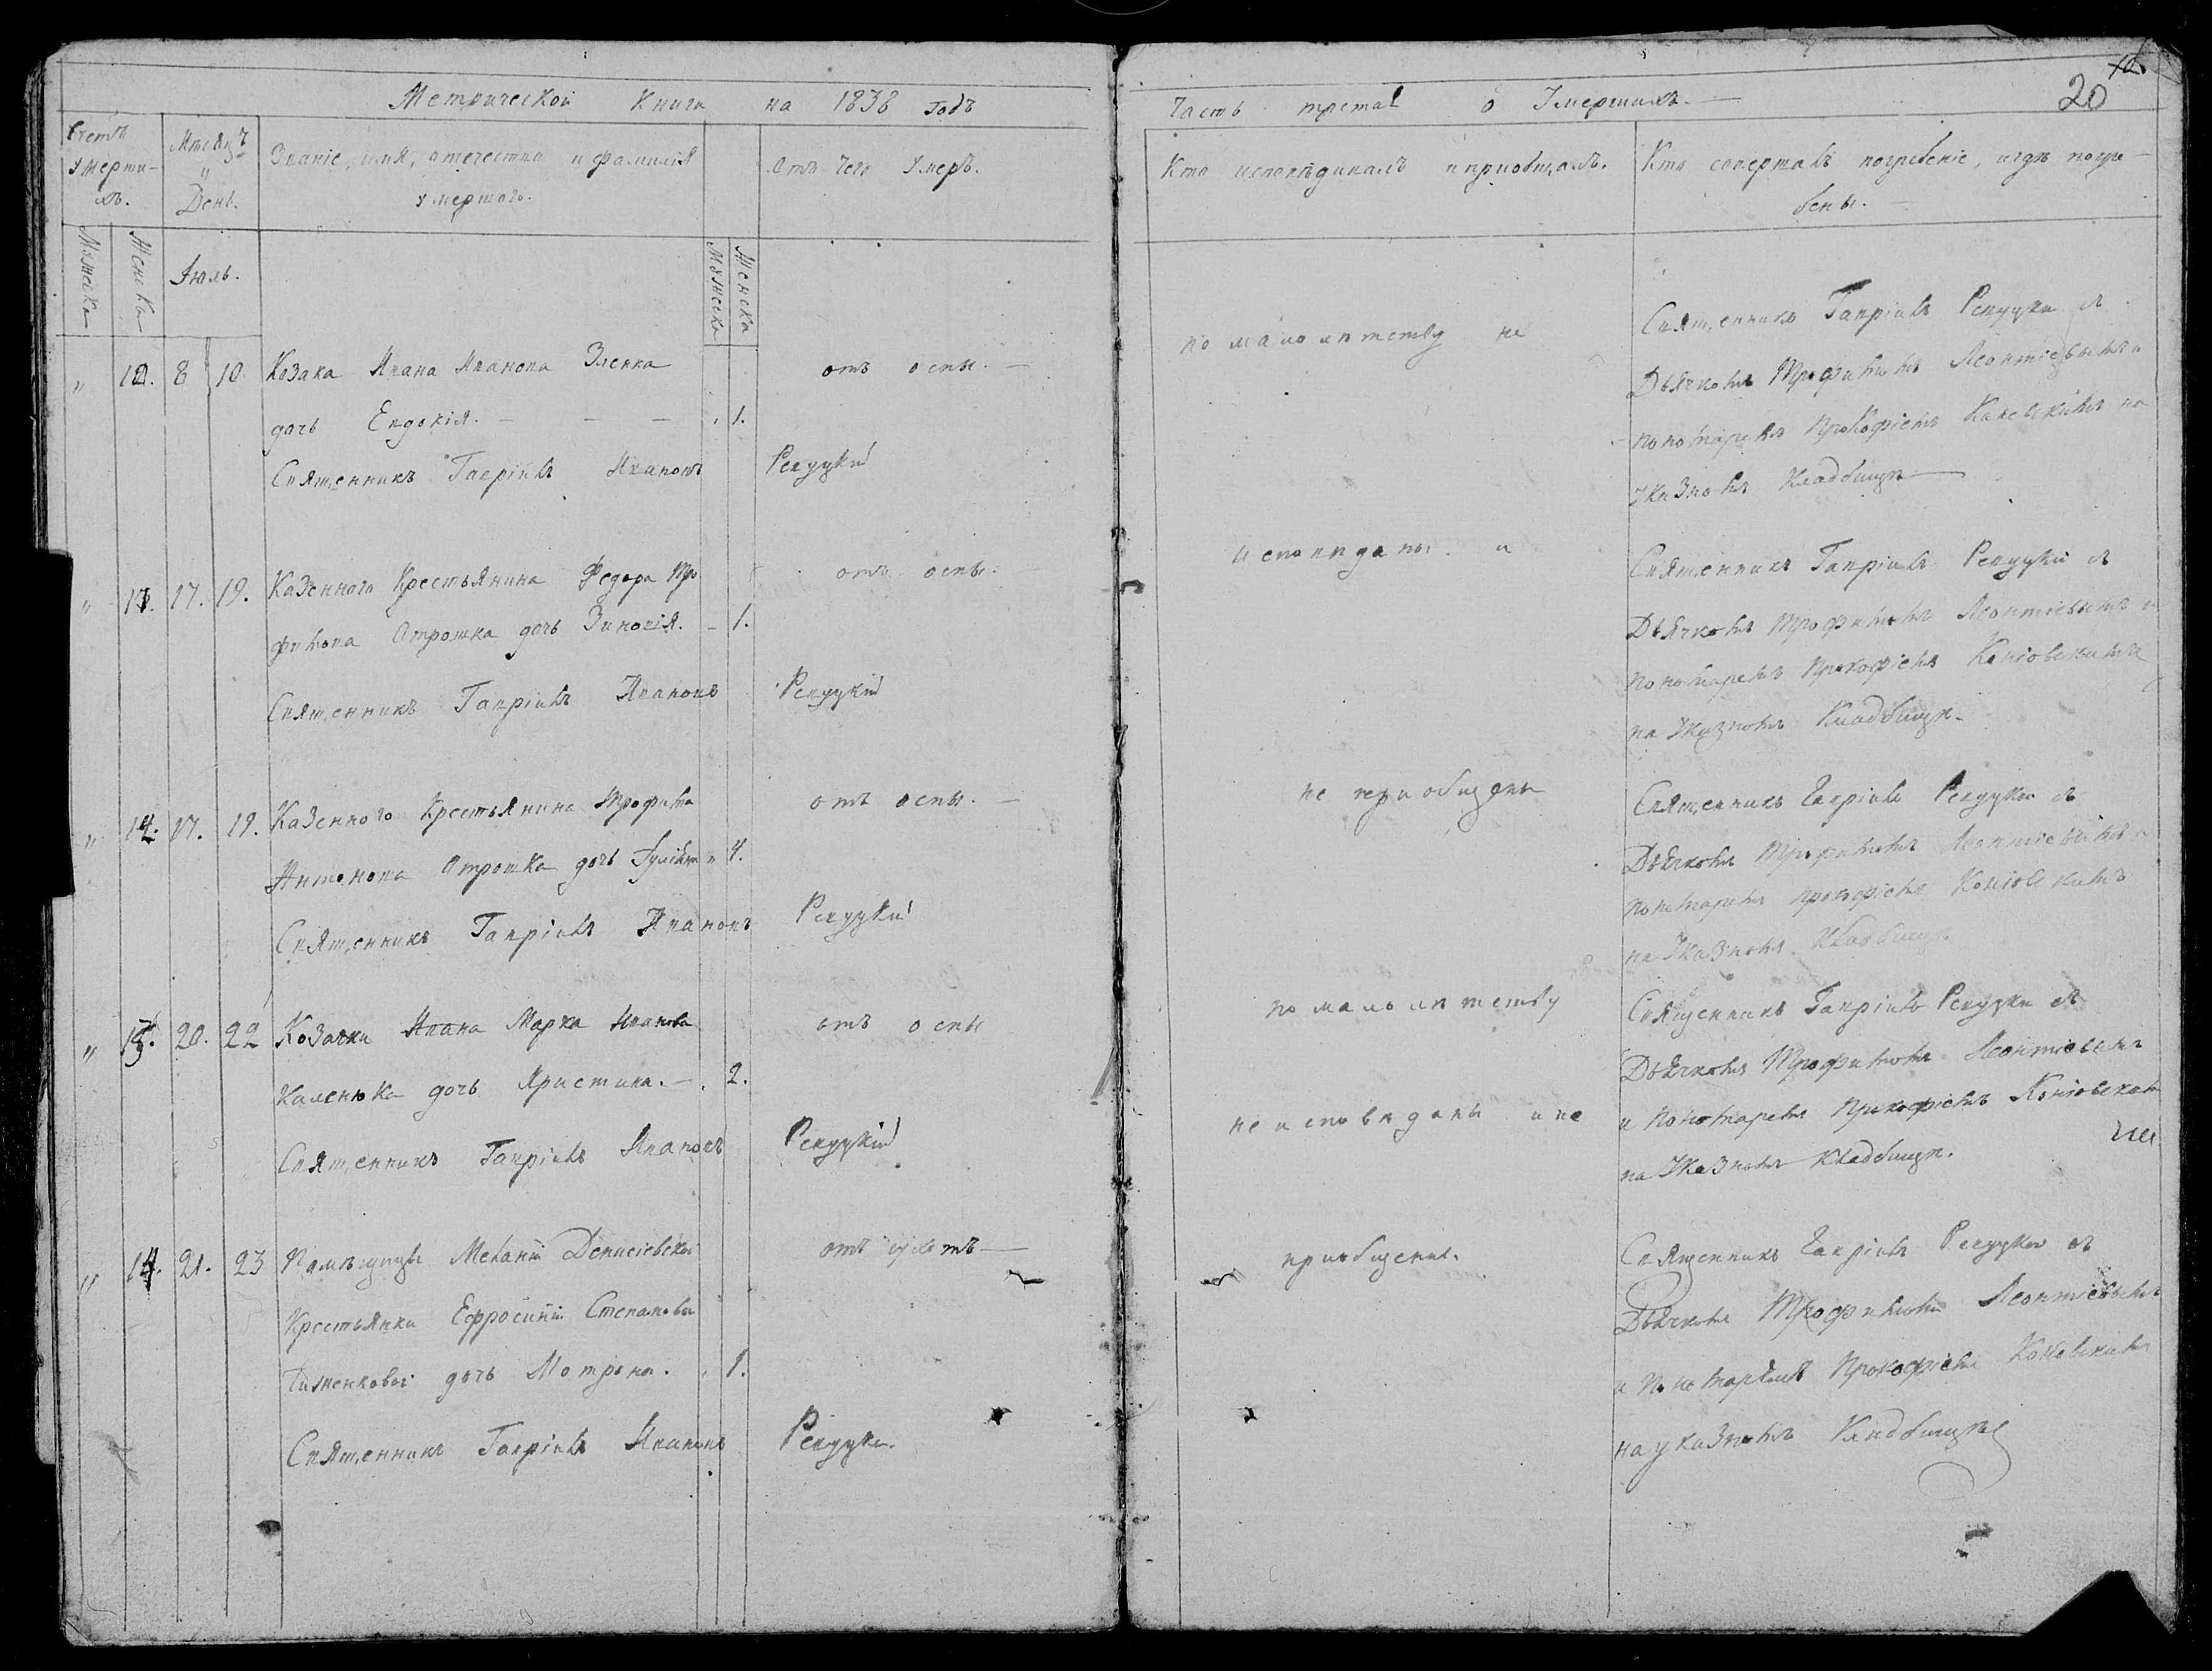 Метрической Книги на 1838 Годъ
Часть третая о Умершихъ.
20
Счетъ умерши-хъ.
Мѣсяцъ и День.
Званіе, имя, отечество и фамилія умершаго.
Отъ чего умеръ.
Кто исповѣдывалъ и пріобщалъ.
Кто совершалъ погребеніе, и гдѣ погре-
бены.
Мужеска Женска
Іюль.
Мужеска Женска
" 12. 8 10. Козака Ивана Иванова
дочь Евдокія. 1.
отъ оспы.
Священникъ Гавріилъ Ивановъ Рекуцкій
по малолѣтству не
Священникъ Гавріилъ Рекуцкій съ
Дьячкомъ Трофимомъ Леонтіевымъ и
пономаремъ Прокофіемъ на
указномъ кладбищѣ
" 13. 17. 19. Казенного Крестьянина Федора Тро
фимова Отрошка дочь Зиновія. 1.
отъ оспы.
Священникъ Гавріилъ Ивановъ Рекуцкій
исповѣданы и
Священникъ Гавріилъ Рекуцкій съ
Дьячкомъ Трофимомъ Леонтіевымъ и
пономаремъ Прокофіемъ
на указномъ Кладбищѣ.
" 14. 17. 19. Казенного Крестьянина Трофима
Антонова Отрошка дочь 4.
отъ оспы.
Священникъ Гавріилъ Ивановъ Рекуцкій
не пріобщены
Священникъ Гавріилъ Рекуцкій съ
Дьячкомъ Трофимомъ Леонтіевымъ и
пономаремъ Прокофіемъ
на указномъ Кладбищѣ
" 15. 20. 22 Козачки Марка Иванова
дочь Христина. 2.
отъ оспы
Священникъ Гавріилъ Ивановъ Рекуцкій
по малолѣтству
не исповѣданы и не
Священникъ Гавріилъ Рекуцкій съ
Дьячкомъ Трофимомъ Леонтіевымъ
и пономаремъ Прокофіемъ
на указномъ кладбищѣ.
" 14. 21. 23 Помѣщицы Меланіи Денисіевской
Крестьянки Ефросиніи Степановой
дочь Мотрона. 1.
Священникъ Гавріилъ Ивановъ Рекуцкій.
пріобщены.
Священникъ Гавріилъ Рекуцкій съ
Дьячкомъ Трофимомъ Леонтіевымъ
и пономаремъ Прокофіемъ
на указномъ Кладбищѣ